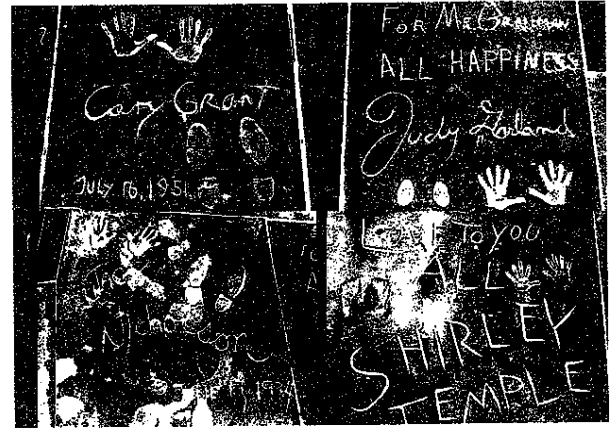 Cary GRANT
JULY 16, 1951
FOR MR GRAUMAN
ALL HAPPINESS
Judy Garland
Jack
Nicholson
LOVE TO YOU
ALL
SHIRLEY
TEMPLE